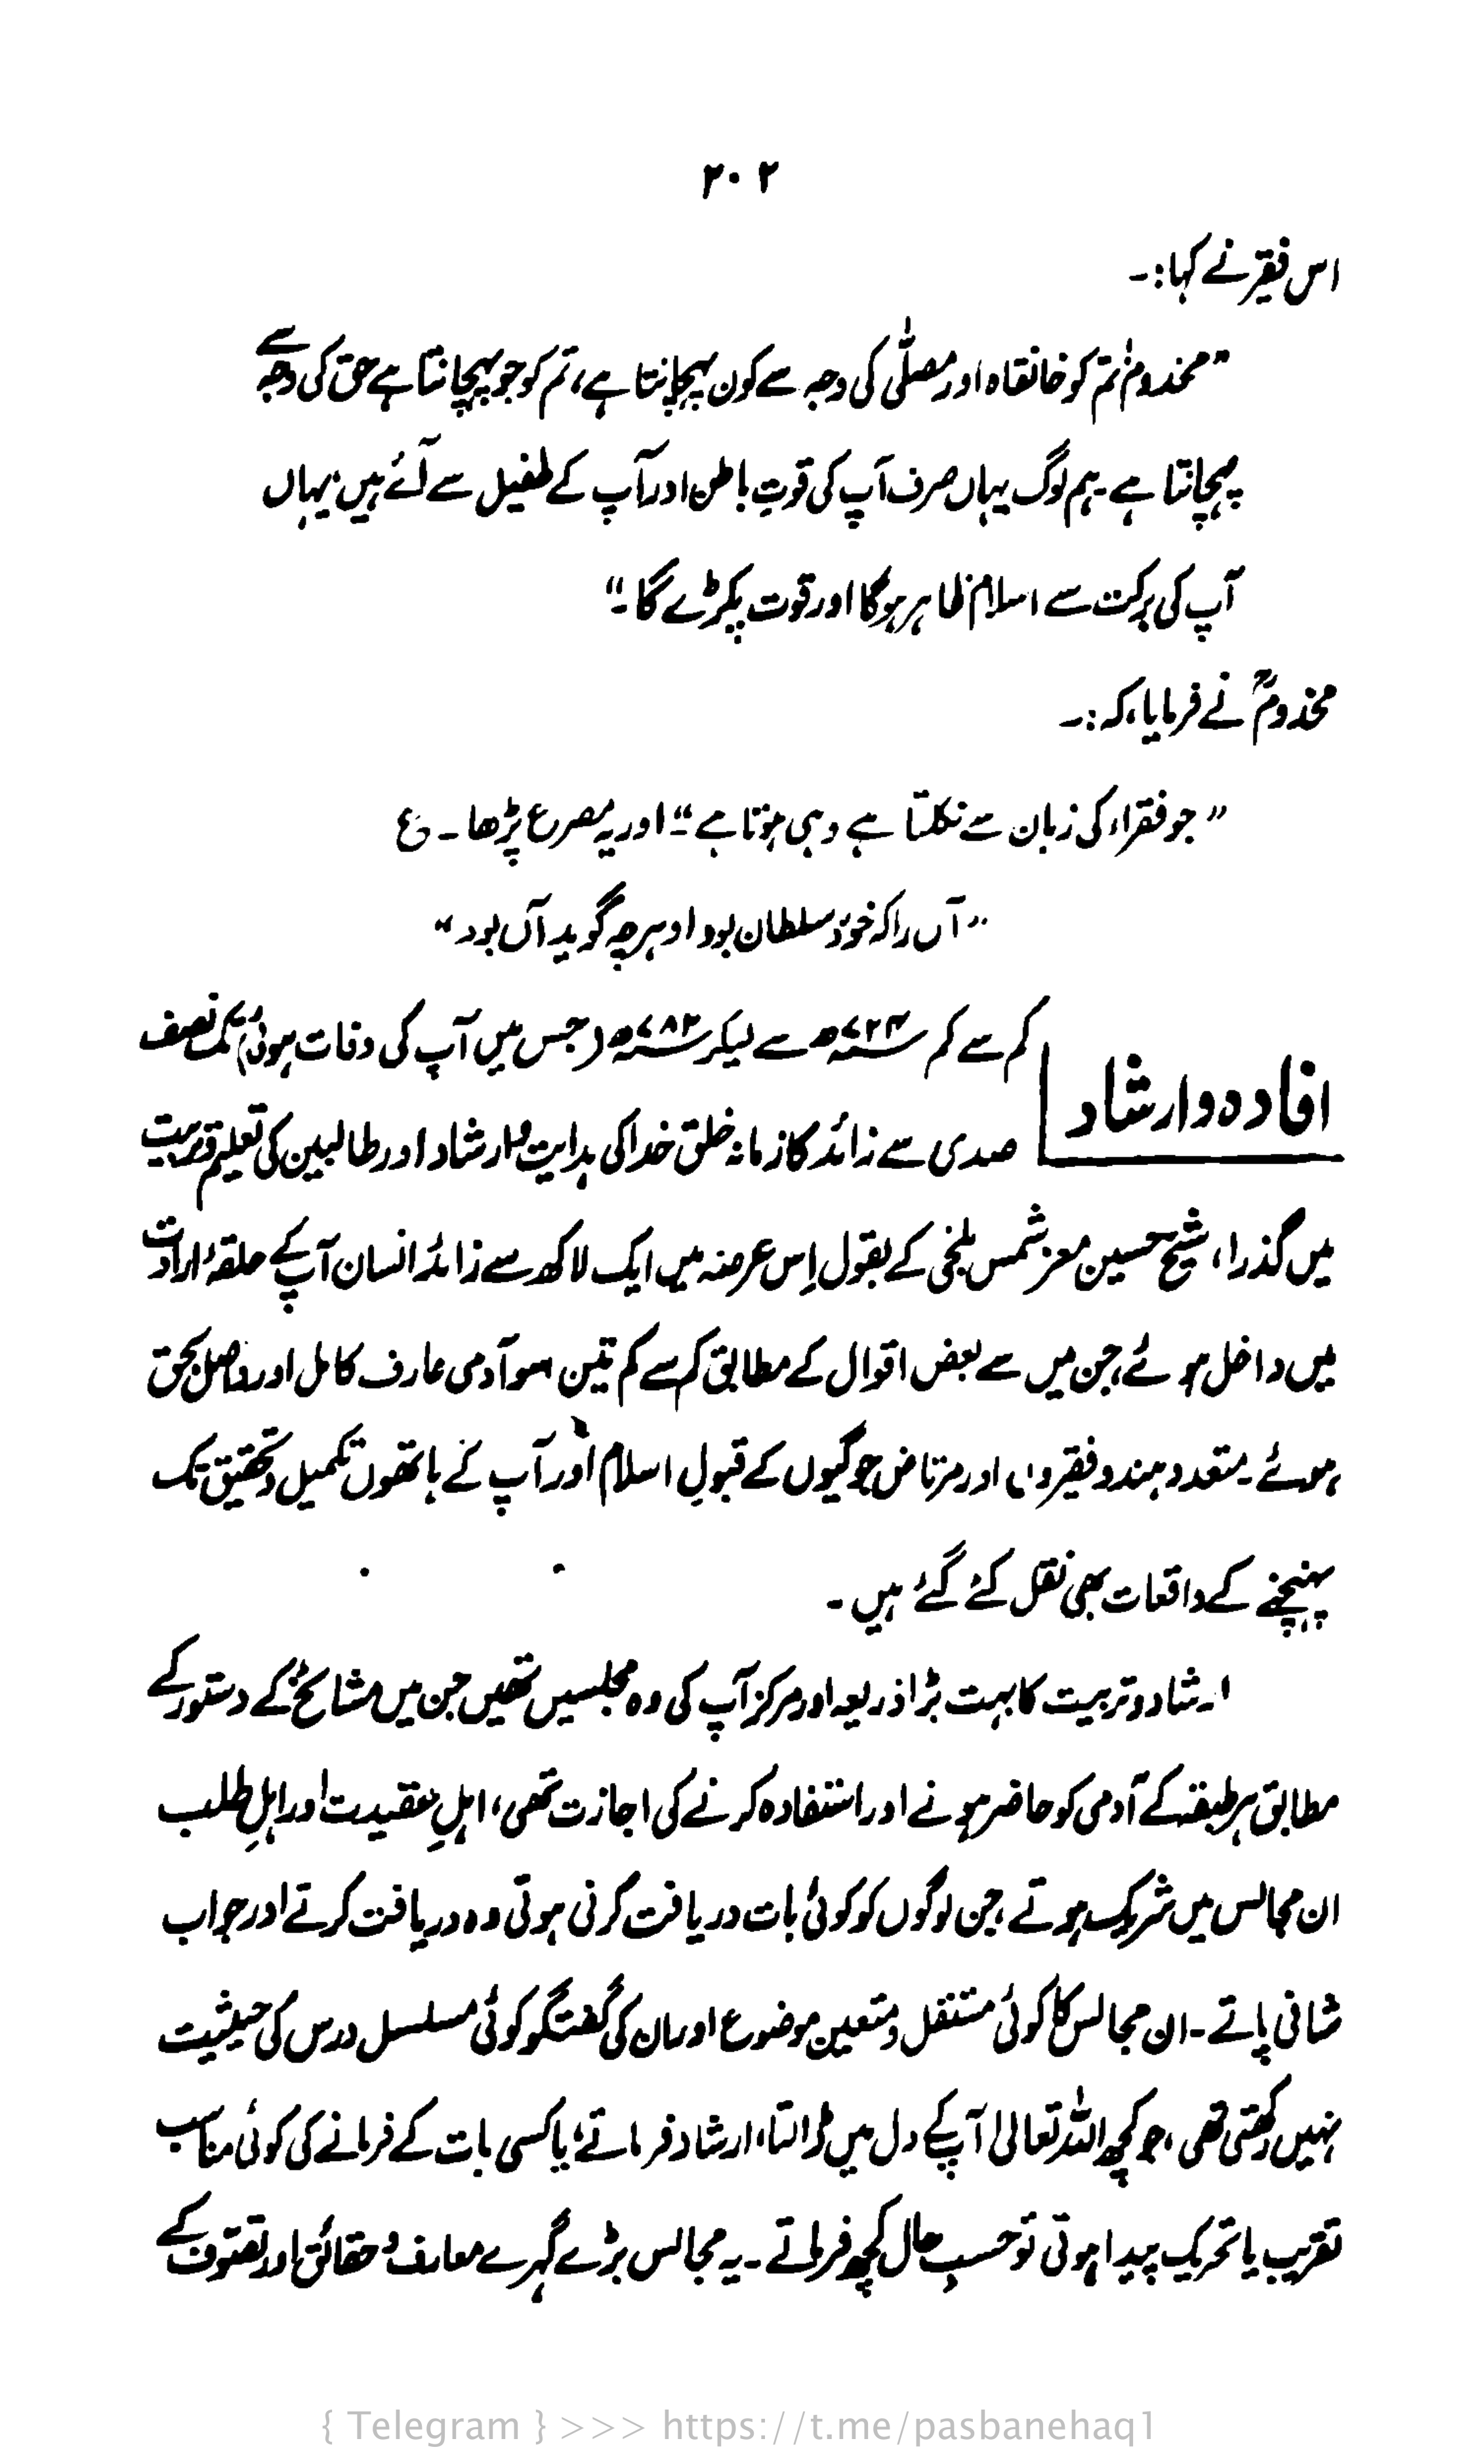 ۲۰۲
اس فقیر نے کہا:۔
"مخدوم! تم کو خانقاہ اور مصلّٰی کی وجہ سے کون پہچانتا ہے، تم کو جو پہچانتا ہے حق کی وجہ سے
پہچانتا ہے۔ ہم لوگ یہاں صرف آپ کی قوتِ باطن اور آپ کے طفیل سے آئے ہیں، یہاں
آپ کی برکت سے اسلام ظاہر ہوگا اور قوت پکڑے گا۔"
مخدومؒ نے فرمایا، کہ:۔
"جو فقراء کی زبان سے نکلتا ہے وہی ہوتا ہے" اور یہ مصرع پڑھا۔ ع
"آں را کہ خود سلطان بود او ہرچہ گوید آں بود"
افادہ وارشاد
کم سے کم ۷۲۴ھ سے لیکر ۷۸۲ھ (جس میں آپ کی وفات ہوئی) تک نصف
صدی سے زائد کا زمانہ خلق خدا کی ہدایت و ارشاد اور طالبین کی تعلیم و تربیت
میں گذرا، شیخ حسین معز شمس بلخی کے بقول اِس عرصہ میں ایک لاکھ سے زائد انسان آپ کے حلقۂ ارادت
میں داخل ہوئے، جن میں سے بعض اقوال کے مطابق کم سے کم تین سو آدمی عارف کامل اور واصل بحق
ہوئے۔ متعدد ہندو فقیروں اور مرتاض جوگیوں کے قبولِ اسلام اور آپ کے ہاتھوں تکمیل و تحقیق تک
پہنچنے کے واقعات بھی نقل کئے گئے ہیں۔
ارشاد و تربیت کا بہت بڑا ذریعہ اور مرکز آپ کی وہ مجلسیں تھیں جن میں مشائخؒ کے دستور کے
مطابق ہر طبقہ کے آدمی کو حاضر ہونے اور استفادہ کرنے کی اجازت تھی، اہلِ عقیدت اور اہلِ طلب
ان مجالس میں شریک ہوتے، جن لوگوں کو کوئی بات دریافت کرنی ہوتی وہ دریافت کرتے اور جواب
شافی پاتے۔ ان مجالس کا کوئی مستقل و متعین موضوع اور ان کی گفتگو کوئی مسلسل درس کی حیثیت
نہیں رکھتی تھی، جو کچھ اللہ تعالیٰ آپ کے دل میں ڈالتا، ارشاد فرماتے، یا کسی بات کے فرمانے کی کوئی مناسب
تقریب یا تحریک پیدا ہوتی تو حسبِ حال کچھ فرماتے۔ یہ مجالس بڑے گہرے معارف و حقائق اور تصوف کے
{ Telegram } >>> https://t.me/pasbanehaq1